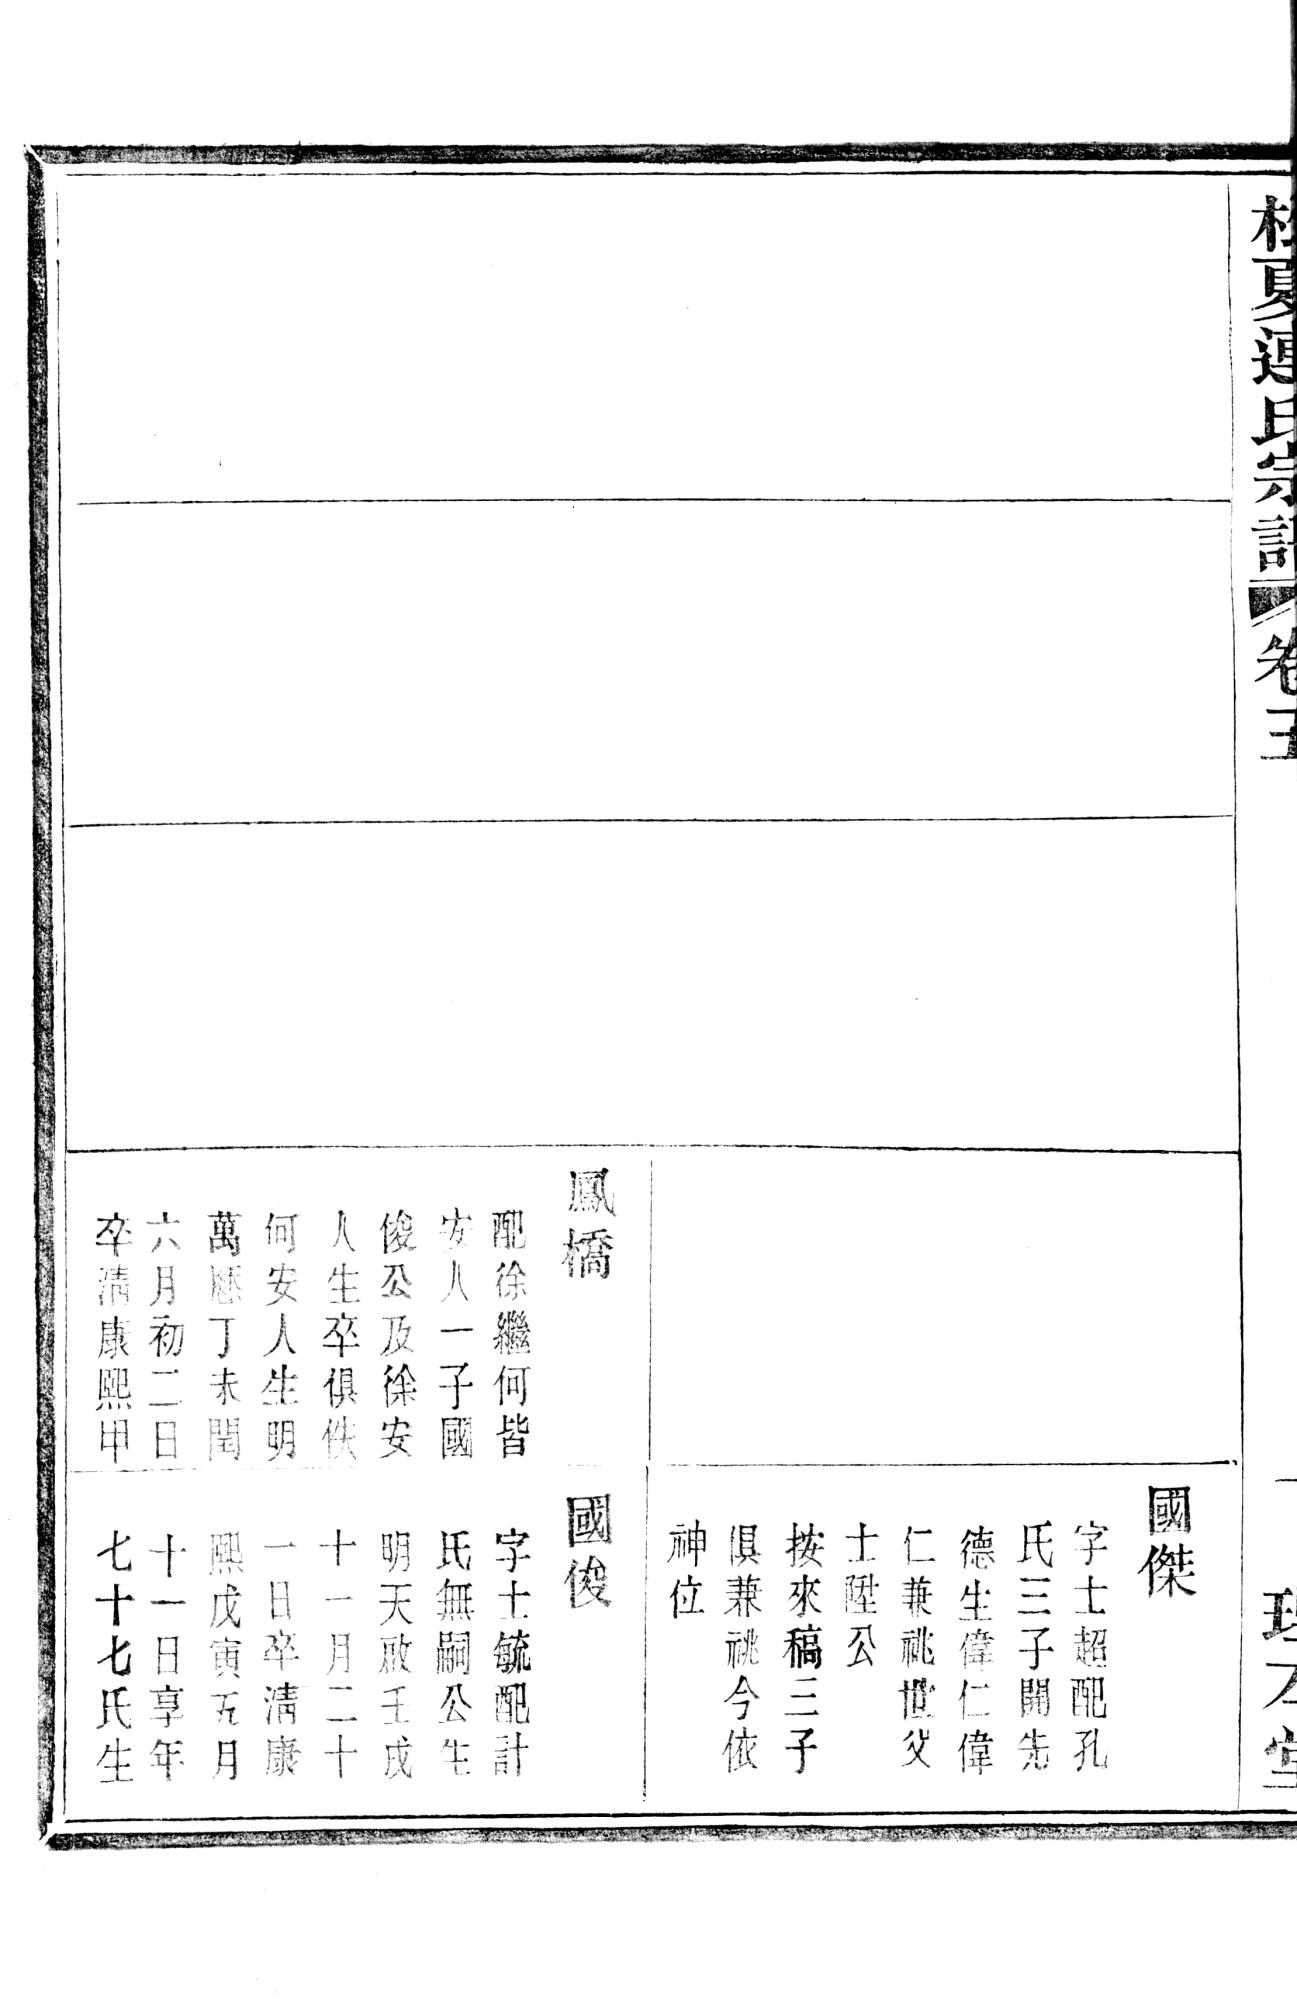 松夏連氏宗譜
卷五
一
國傑
字士超配孔
氏三子開先
德生偉仁偉
仁兼祧世父
士陞公
按來稿三子
俱兼祧今依
神位
鳳橋
配徐繼何皆
安人一子國
俊公及徐安
人生卒俱佚
何安人生明
萬厯丁未閏
六月初二日
卒清康熙甲
國俊
字士毓配計
氏無嗣公生
明天啟壬戌
十一月二十
一日卒清康
熙戊寅五月
十一日享年
七十七氏生